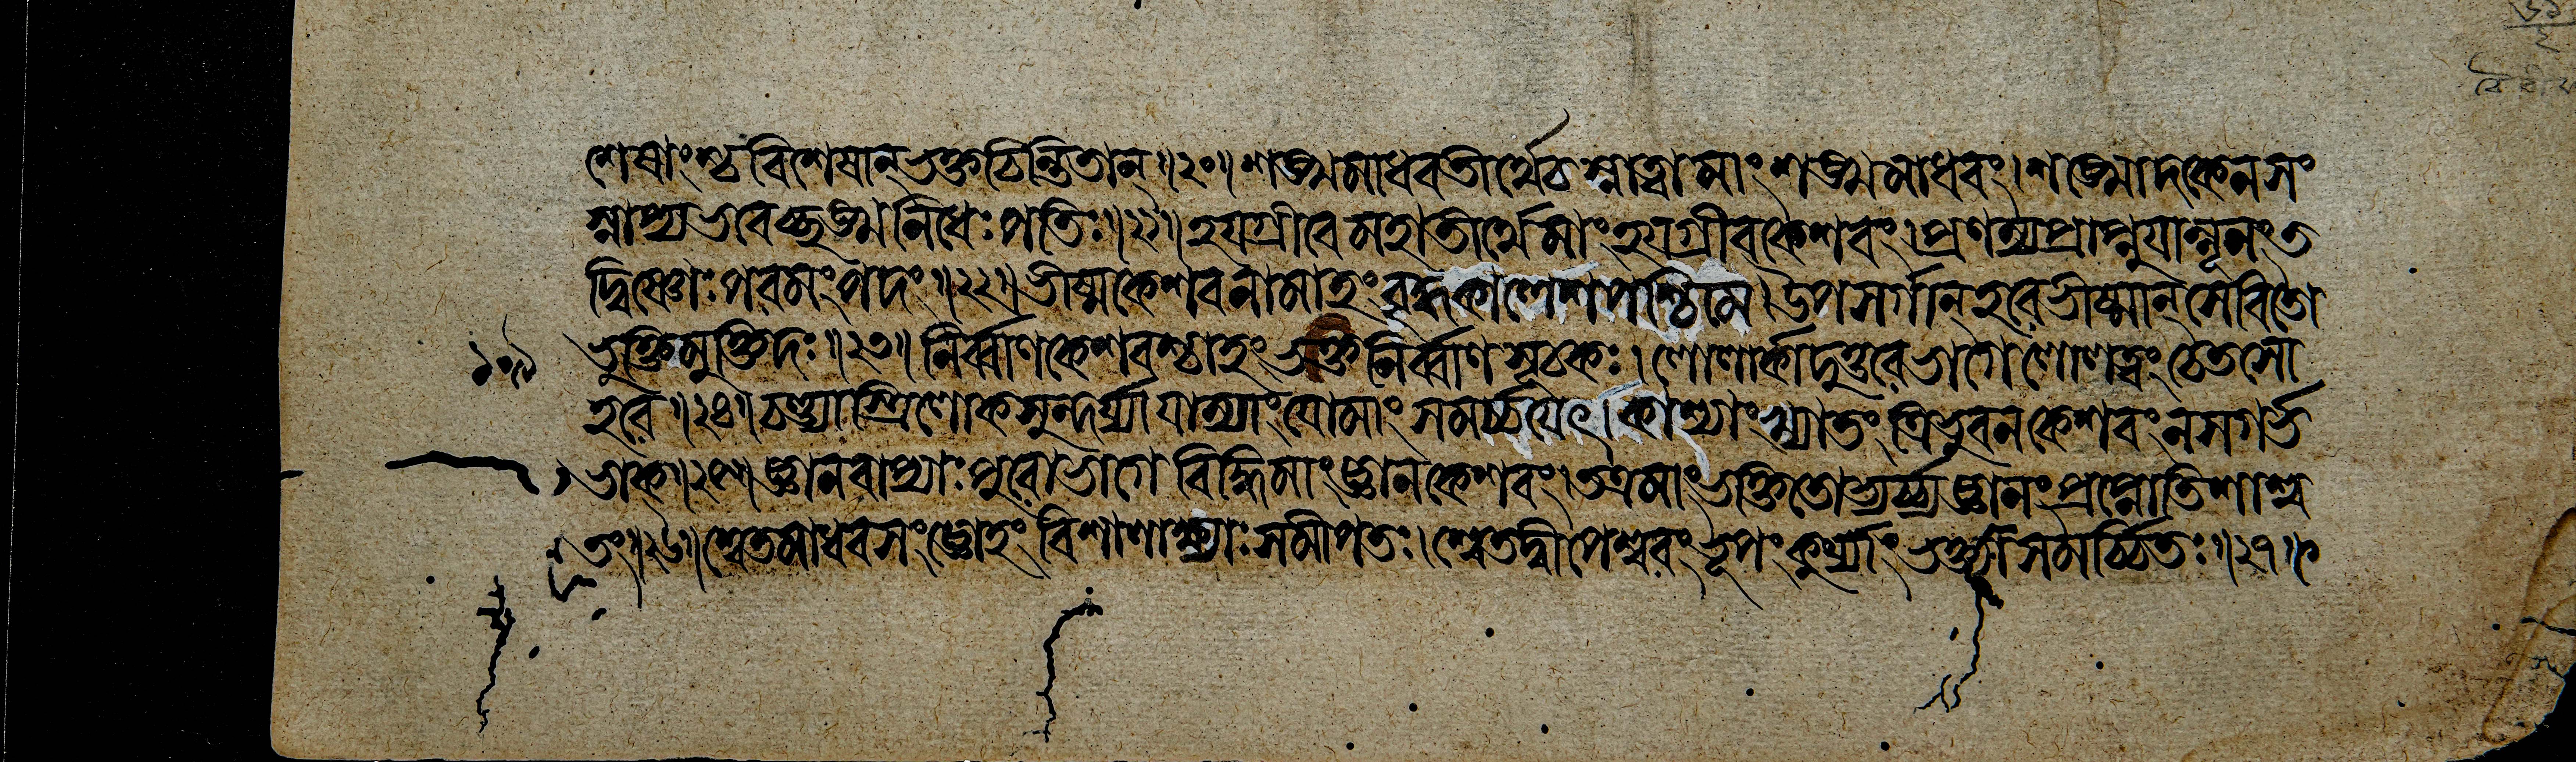 শেষাংশ্চ বিশেষান্ ভক্তচিন্তিতান্ ॥২০॥ শঙ্খমাধবতীর্থে চ স্নাত্বা মাং শঙ্খমাধবং। শঙ্খোদকেন সং
স্নাপ্য ভবেচ্ছঙ্খনিধেঃ পতিঃ ॥২১॥ হয়গ্রীবে মহাতীর্থে মাং হয়গ্রীবকেশবং। প্রণত্য প্রাপ্নুয়ান্নূনং ত
দ্বিষ্ণোঃ পরমং পদং ॥২২॥ ভীষ্মকেশবনামাহং বৃদ্ধকালেশপশ্চিমে। উপসর্গান্ হরে ভীষ্মান্ সেবিতো
১০৯ ভুক্তিমুক্তিদঃ ॥২৩॥ নির্ব্বাণকেশবশ্চাহং ভক্তনির্ব্বাণসূচকঃ। লোলার্কাদুত্তরে ভাগে লোলত্বং চেতসো
হরে ॥২৪॥ চণ্ড্যাস্ত্রিলোকসুন্দর্য্যা যাম্যাং যো মাং সমর্চ্চয়েৎ। কাশ্যাং খ্যাতং ত্রিভুবনকেশবং ন স গর্ভ
ভাক্ ॥২৫॥ জ্ঞানবাপ্যাঃ পুরোভাগে বিদ্ধি মাং জ্ঞানকেশবং। তত্র মাং ভক্তিতোভ্যর্চ্চ্য জ্ঞানং প্রাপ্নোতি শাশ্ব
তং ॥২৬॥ শ্বেতমাধবসংজ্ঞোহং বিশালাক্ষ্যাঃ সমীপতঃ। শ্বেতদ্বীপেশ্বরং রূপং কুর্য্যাং ভক্ত্যা সমর্চ্চিতঃ ॥২৭॥